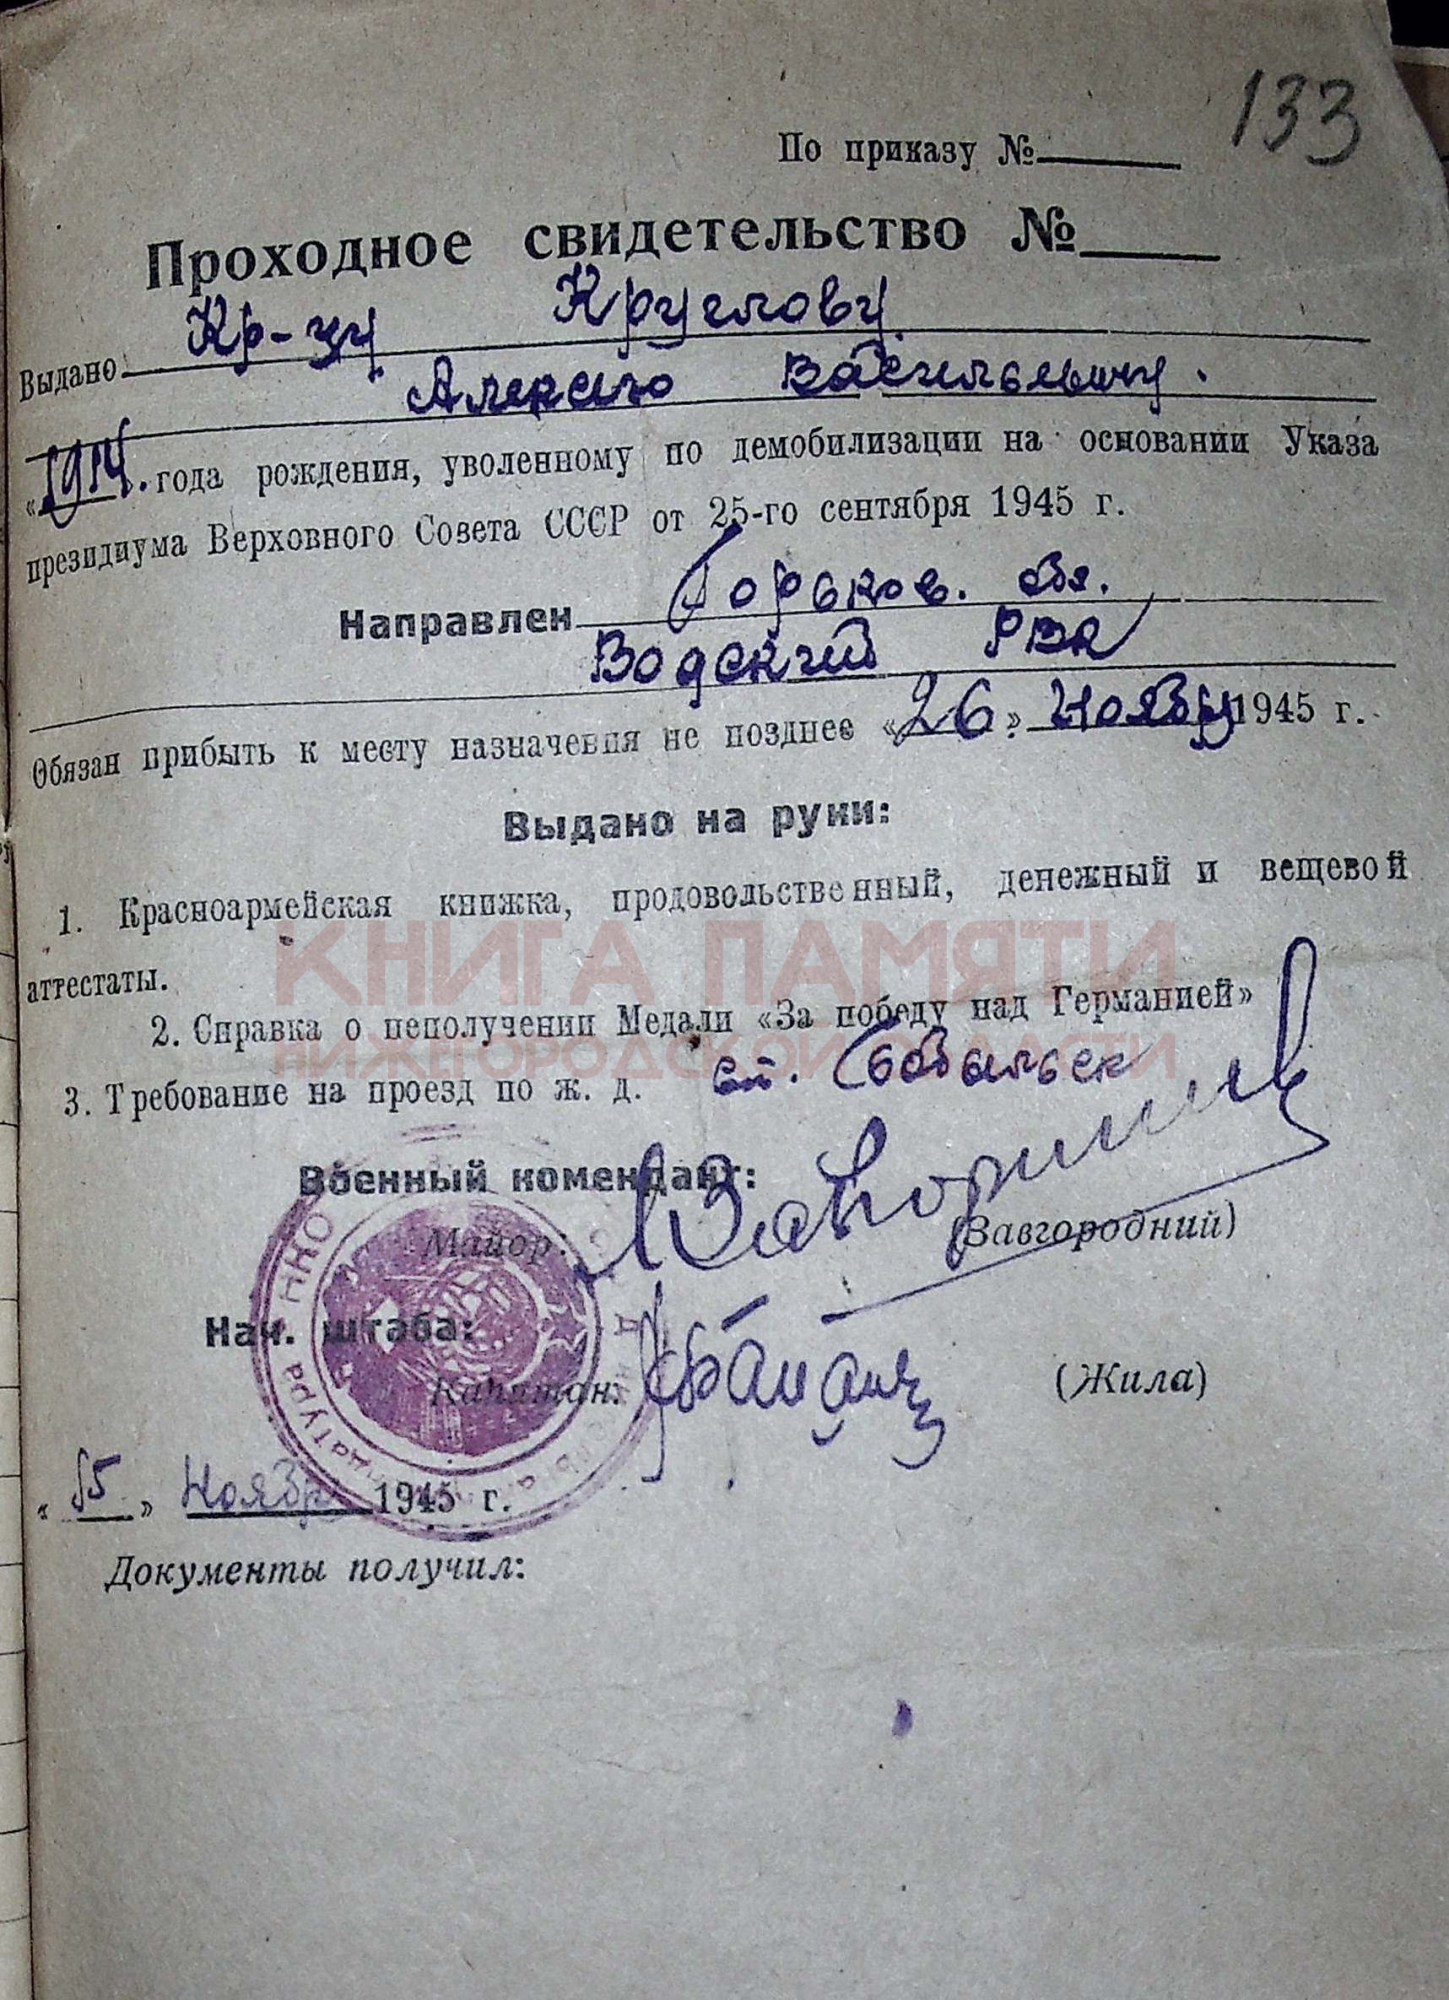 133
По приказу №
Проходное свидетельство №
Выдано Кр-цу Круглову
Алексею Васильевичу.
«1914. года рождения, уволенному по демобилизации на основании Указа
президиума Верховного Совета СССР от 25-го сентября 1945 г.
Направлен Горьков. обл.
Водский РВК
Обязан прибыть к месту назначения не позднее «26» ноября 1945 г.
Выдано на руки:
1. Красноармейская книжка, продовольственный, денежный и вещевой
аттестаты.
КНИГА ПАМЯТИ
2. Справка о неполучении Медали «За победу над Германией»
НИЖЕГОРОДСКОЙ ОБЛАСТИ
3. Требование на проезд по ж. д. ст.
Военный комендант:
Майор: (Завгородний)
Нач. штаба:
Капитан: (Жила)
«15» Ноября 1945 г.
Документы получил: